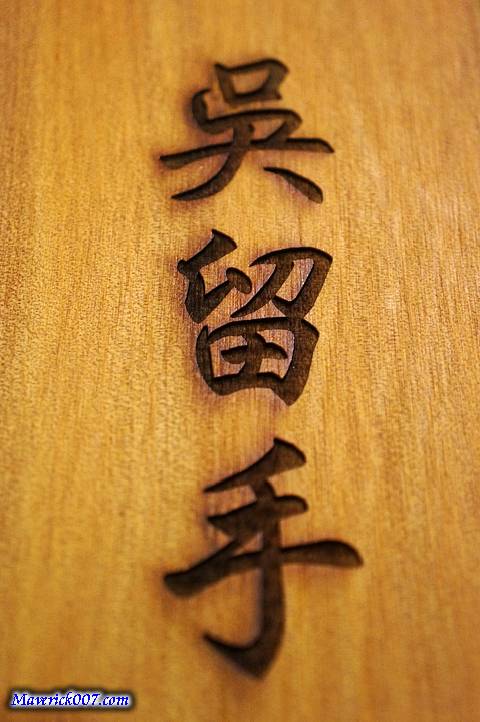 吳留手
Maverick007.com